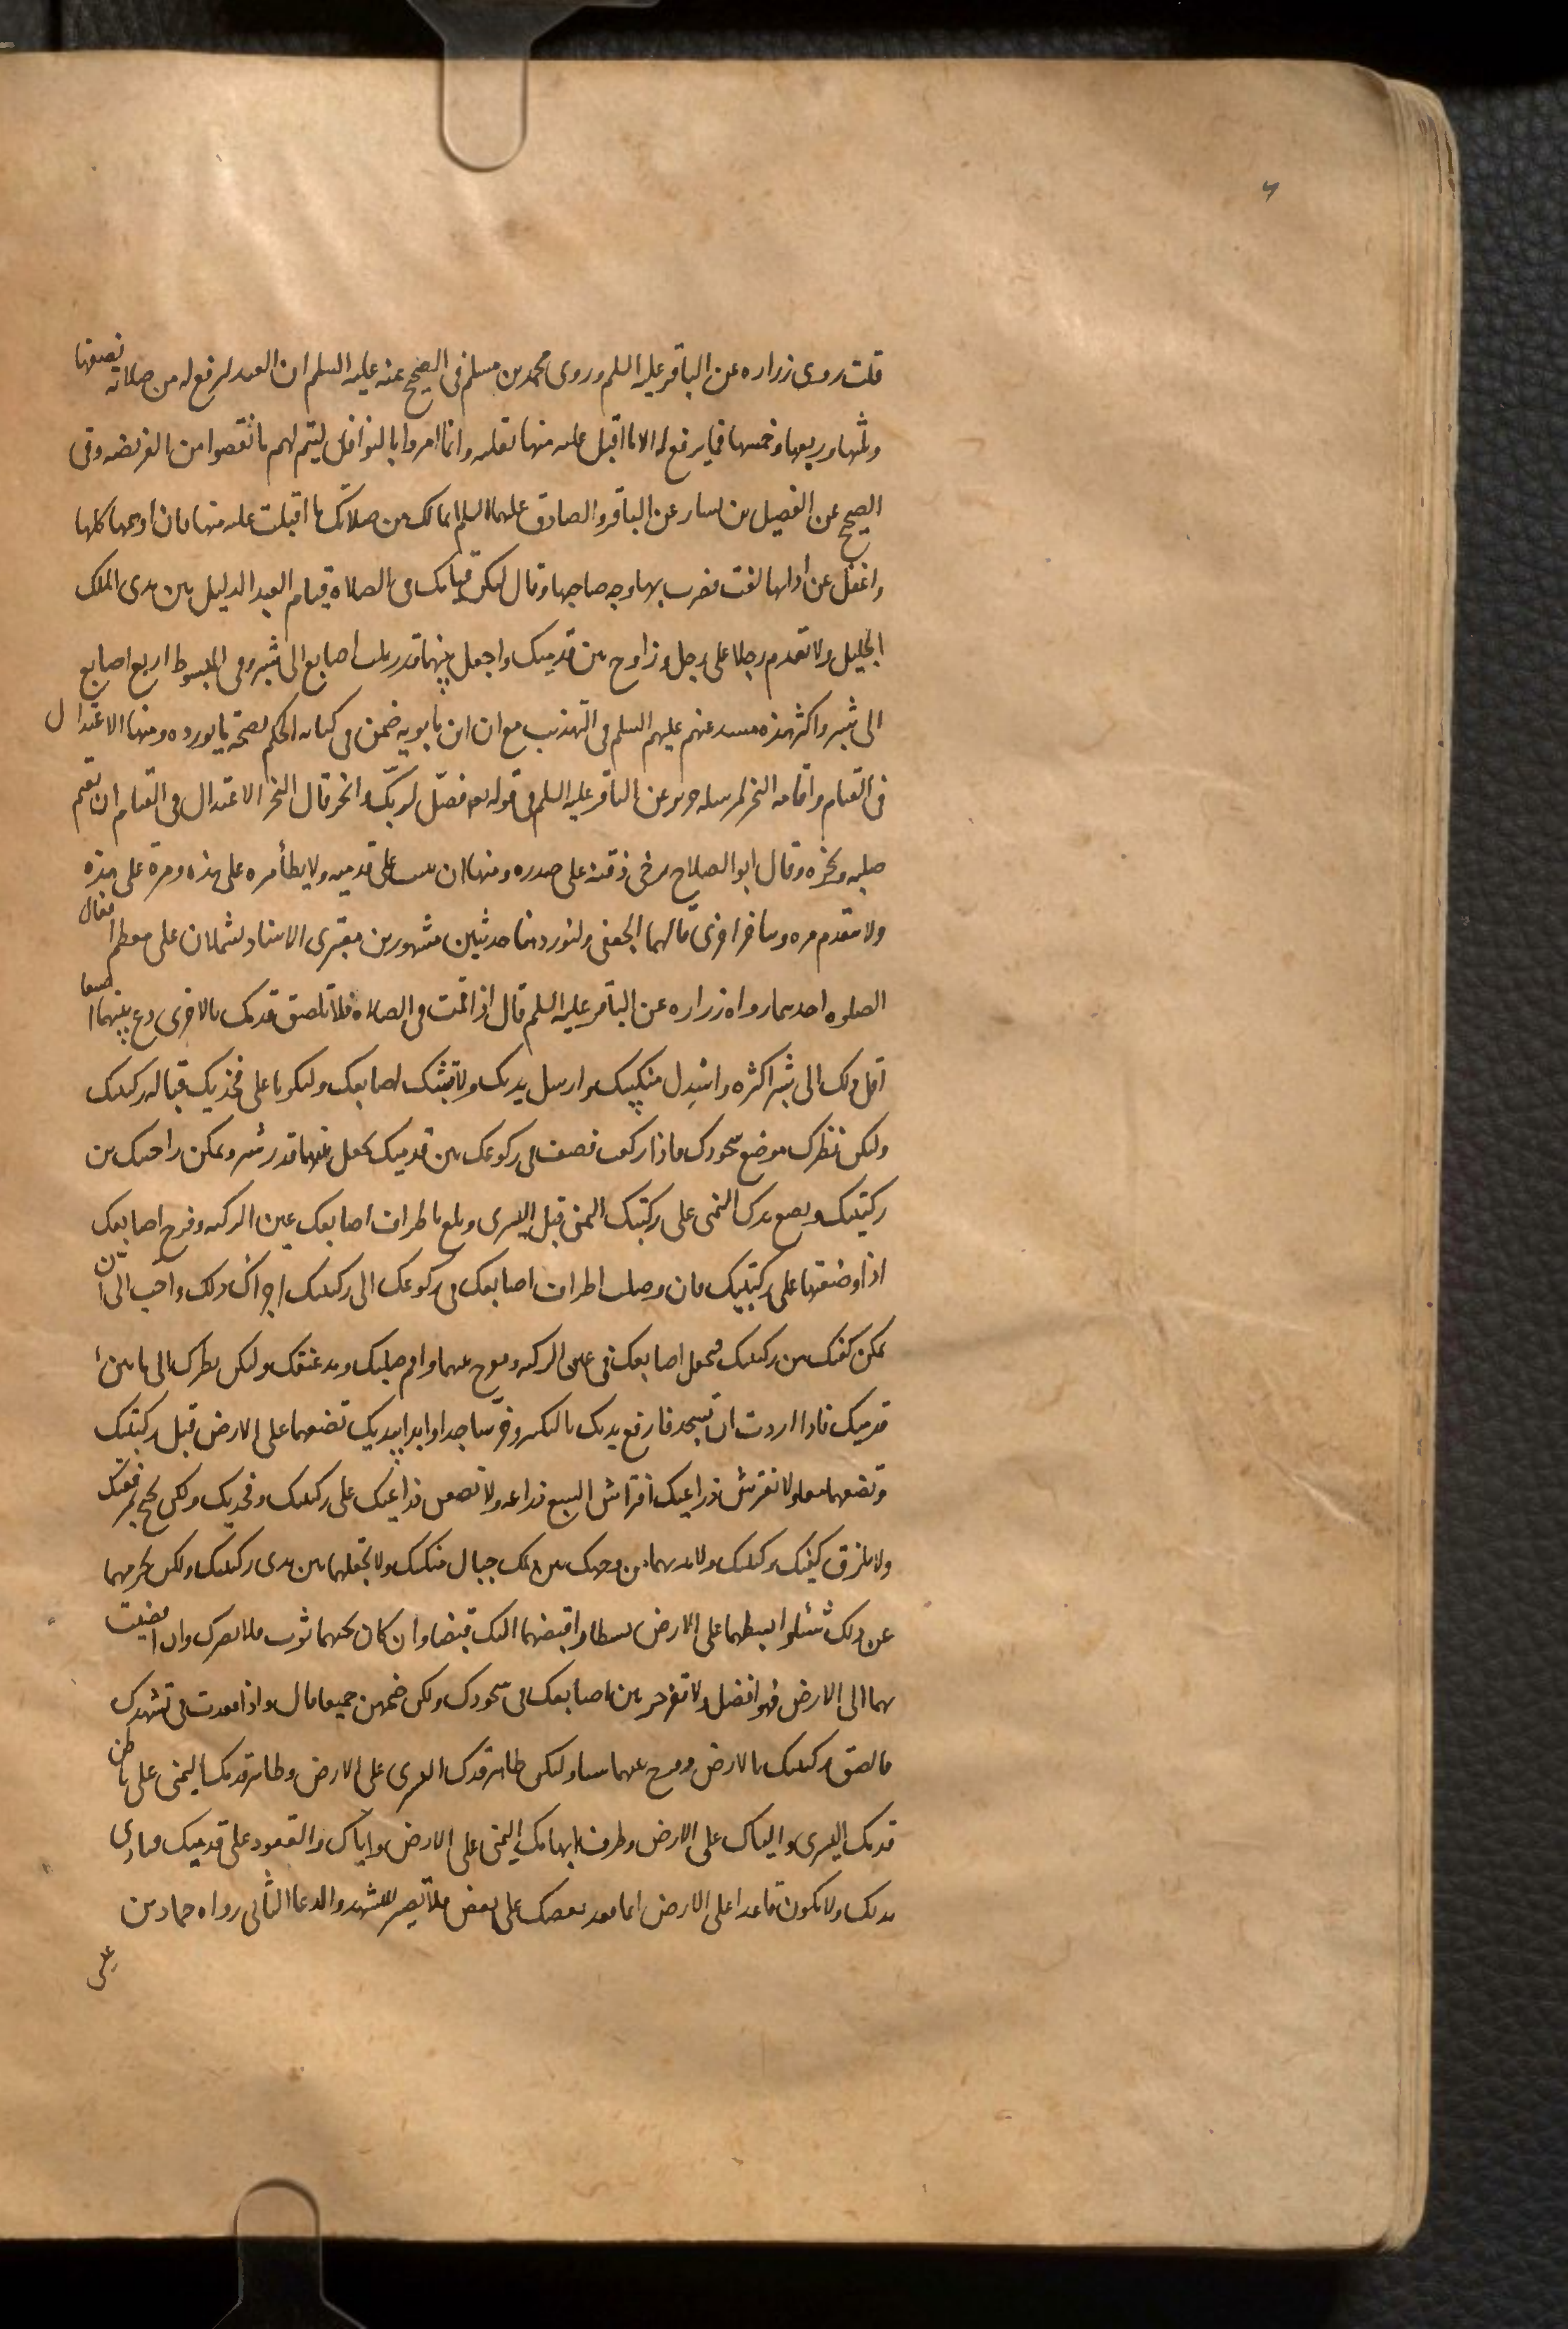 قلت روى زراره عن الباقر عليه السلم وروى محمد بن مسلم فى الصحيح عنه عليه السلم ان العبد ليرفع له من صلاته نصفها
وثلثها وربعها وخمسها فما يرفع له الا ما اقبل عليه منها بقلبه وانما امروا بالنوافل ليتم لهم ما نقصوا من الفريضه وفى
الصحيح عن الفضيل بن يسار عن الباقر والصادق عليهما السلم انما لك من صلاتك ما اقبلت عليه منها فان اوهمها كلها
واغفل عن ادائها لفت فضرب بها وجه صاحبها وقال ليكن قيامك فى الصلاه قيام العبد الذليل بين يدى الملك
الجليل ولا تقدم رجلا على رجل وزاوج بين قدميك واجعل بينهما قدر ثلث اصابع الى شبر وفى المبسوط اربع اصابع
الى شبر واكثر هذه مسند عنهم عليهم السلم فى التهذيب مع ان ابن بابويه ضمن فى كتابه الحكم بصحة ما يورده ومنها الاعتدال
فى القيام واقامه النحر لمرسله حريز عن الباقر عليه السلم فى قوله تعـ فصل لربك وانحر قال النحر الاعتدال فى القيام ان تقيم
صلبه ونحره وقال ابو الصلاح يرخى ذقنه على صدره ومنها ان يثبت على قدميه ولا يطأ مره على هذه ومرة على هذه
ولا يتقدم مره ويتاخر اخرى قالهما الجعفى ولنورد هنا حديثين مشهورين معتبرى الاسناد يشتملان على معظم افعال
الصلوه احدهما رواه زراره عن الباقر عليه السلم قال اذا قمت فى الصلاه فلا تلصق قدمك بالاخرى دع بينهما اصبعا
اقل ذلك الى شبر اكثره واسدل منكبيك وارسل يديك ولا تشبك اصابعك وليكونا على فخذيك قباله ركبتيك
وليكن نظرك موضع سجودك فاذا ركعت فصف فى ركوعك بين قدميك تجعل بينهما قدر شبر وتمكن راحتيك من
ركبتيك وتضع يدك اليمنى على ركبتك اليمنى قبل اليسرى وبلع باطراف اصابعك عين الركبه وفرج اصابعك
اذا وضعتها على ركبتيك فان وصلت اطراف اصابعك فى ركوعك الى ركبتيك اجزاك ذلك واحب الى ان
تمكن كفيك من ركبتيك فتجعل اصابعك فى عين الركبه وتفرج بينهما واقم صلبك ومد عنقك وليكن نظرك الى ما بين
قدميك فاذا اردت ان تسجد فارفع يديك بالتكبير وخر ساجدا وابدا بيديك تضعهما على الارض قبل ركبتيك
وتضعهما معا ولا تفترش ذراعيك افتراش السبع ذراعيه ولا تضعن ذراعيك على ركبتيك وفخذيك ولكن تجنح بمرفقيك
ولا تلزق كفيك بركبتيك ولا تدنهما من وجهك بين ذلك حيال منكبيك ولا تجعلهما بين يدى ركبتيك ولكن تحرفهما
عن ذلك شيئا وابسطهما على الارض بسطا واقبضهما اليك قبضا وان كان تحتهما ثوب فلا يضرك وان افضيت
بهما الى الارض فهو افضل ولا تفرجن بين اصابعك فى سجودك ولكن ضمهن جميعا قال واذا قعدت فى تشهدك
فالصق ركبتيك بالارض وفرج بينهما شيئا وليكن ظاهر قدمك اليسرى على الارض وظاهر قدمك اليمنى على باطن
قدمك اليسرى والياك على الارض وطرف ابهامك اليمنى على الارض واياك والقعود على قدميك فتتاذى
بذلك ولا تكون قاعدا على الارض انما قعد بعضك على بعض فلا تصبر للتشهد والدعا الثانى رواه حماد بن
عيسى